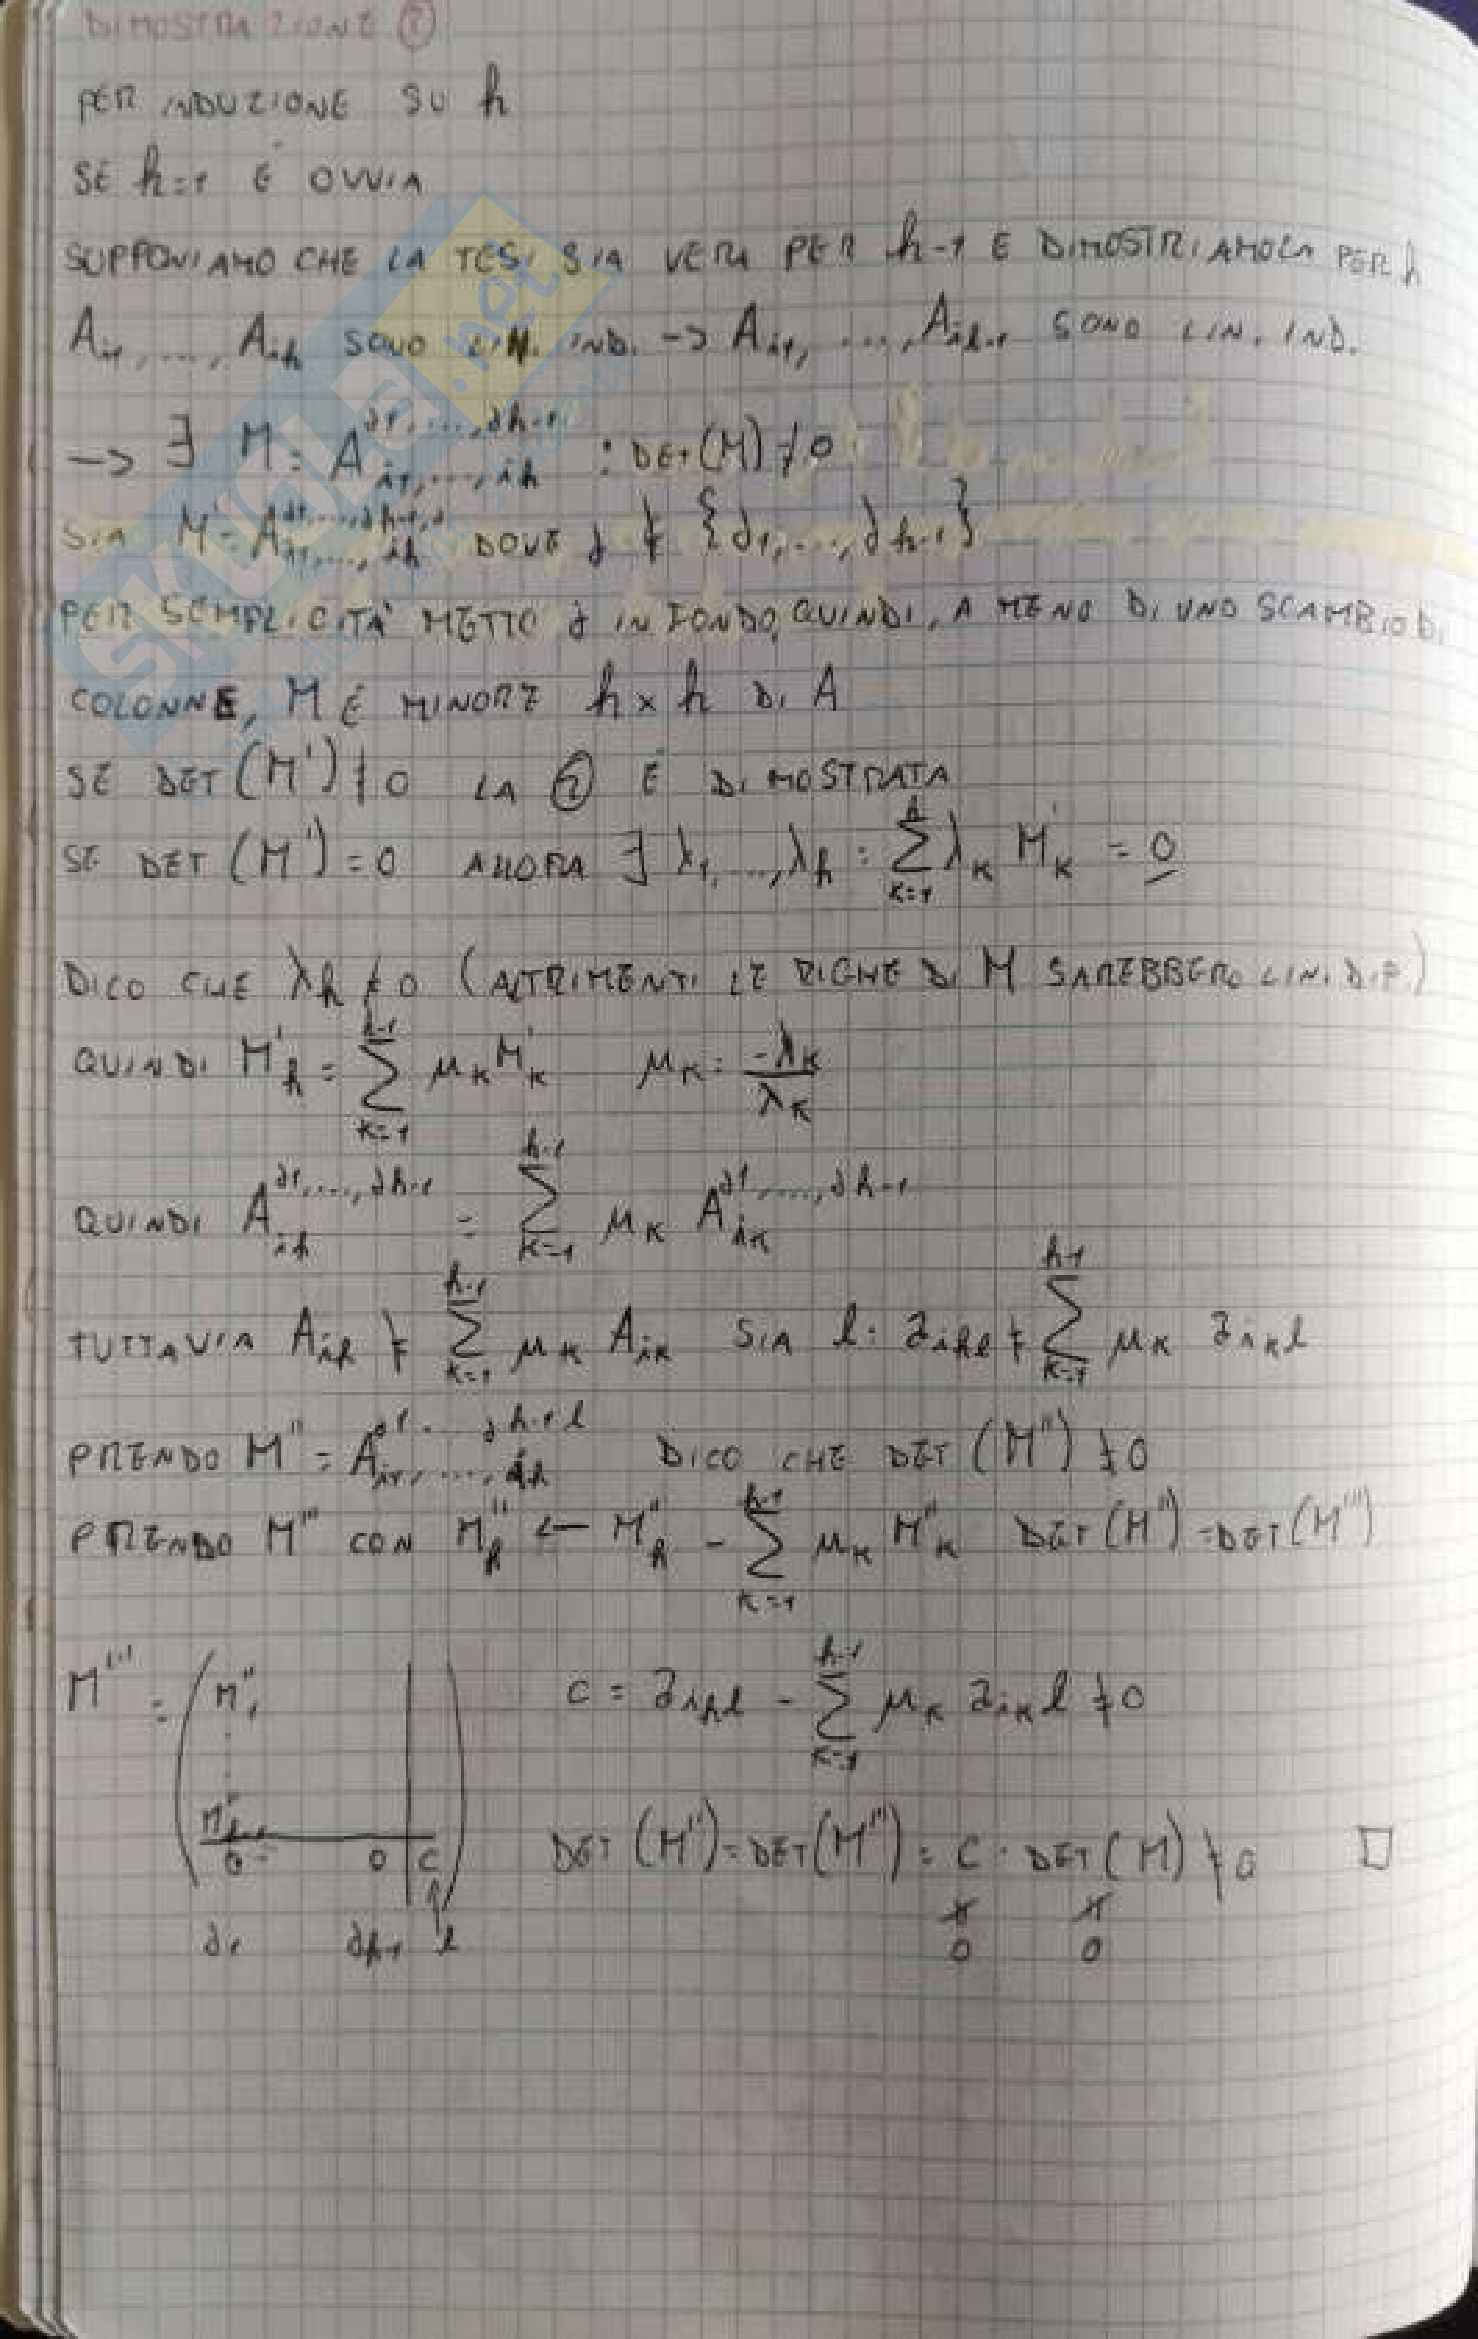 DIMOSTRAZIONE ②
PER INDUZIONE SU h
SE h=1 È OVVIA
SUPPONIAMO CHE LA TESI SIA VERA PER h-1 E DIMOSTRIAMOLA PER h
A_{i1}, ..., A_{ih} SONO LIN. IND. -> A_{i1}, ..., A_{ih-1} SONO LIN. IND.
-> ∃ M = A_{i1,...,ih}^{j1,...,jh-1} : DET(M) ≠ 0
SIA M' = A_{i1,...,ih}^{j1,...,jh-1,j} DOVE j ∉ {j1, ..., jh-1}
PER SEMPLICITÀ METTO j IN FONDO, QUINDI, A MENO DI UNO SCAMBIO DI
COLONNE, M È MINORE h × h DI A
SE DET(M') ≠ 0 LA ② È DIMOSTRATA
SE DET(M') = 0 ALLORA ∃ λ_1, ..., λ_h : Σ_{K=1}^{h} λ_K M'_K = 0
DICO CHE λ_h ≠ 0 (ALTRIMENTI LE RIGHE DI M SAREBBERO LIN. DIP.)
QUINDI M'_h = Σ_{K=1}^{h-1} μ_K M'_K μ_K = -λ_K / λ_K
QUINDI A_{ih}^{j1,...,jh-1} = Σ_{K=1}^{h-1} μ_K A_{iK}^{j1,...,jh-1}
TUTTAVIA A_{ih} ≠ Σ_{K=1}^{h-1} μ_K A_{iK} SIA l: a_{ihl} ≠ Σ_{K=1}^{h-1} μ_K a_{iKl}
PRENDO M'' = A_{i1,...,ih}^{j1...jh-1 l} DICO CHE DET(M'') ≠ 0
PRENDO M''' CON M''_h <- M''_h - Σ_{K=1}^{h-1} μ_K M''_K DET(M'') = DET(M''')
M''' = ( M''_1 c = a_{ihl} - Σ_{K=1}^{h-1} μ_K a_{iKl} ≠ 0
M''_{h-1}
0 0 c ) DET(M'') = DET(M''') = c · DET(M) ≠ 0 □
≠ ≠
j1 jh-1 l 0 0
SKUOLA.net